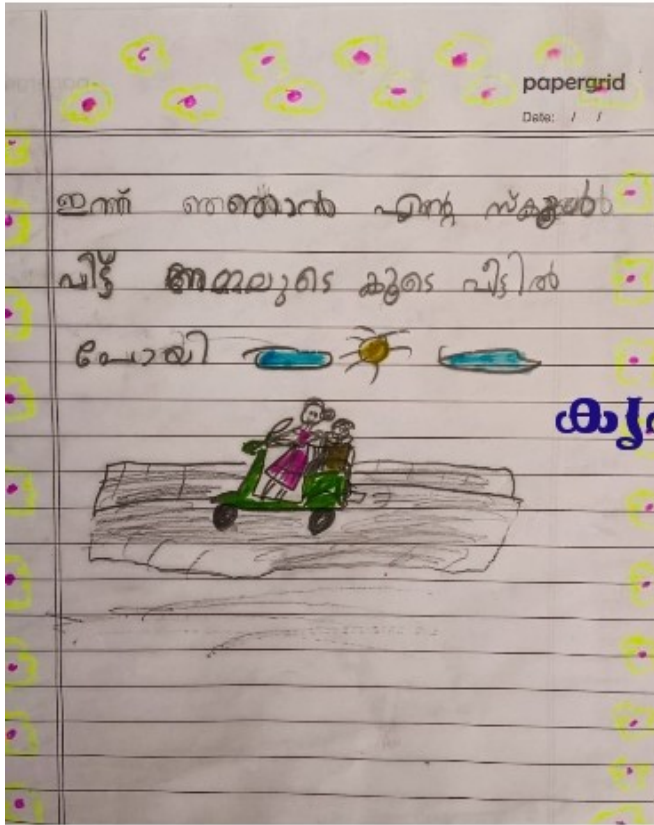 papergrid
Date: / /
ഇന്ന് ഞഞാൻ എന്റ സ്കൂൾ
വിട്ട് അമ്മലുടെ കൂടെ വീട്ടിൽ
പോയി